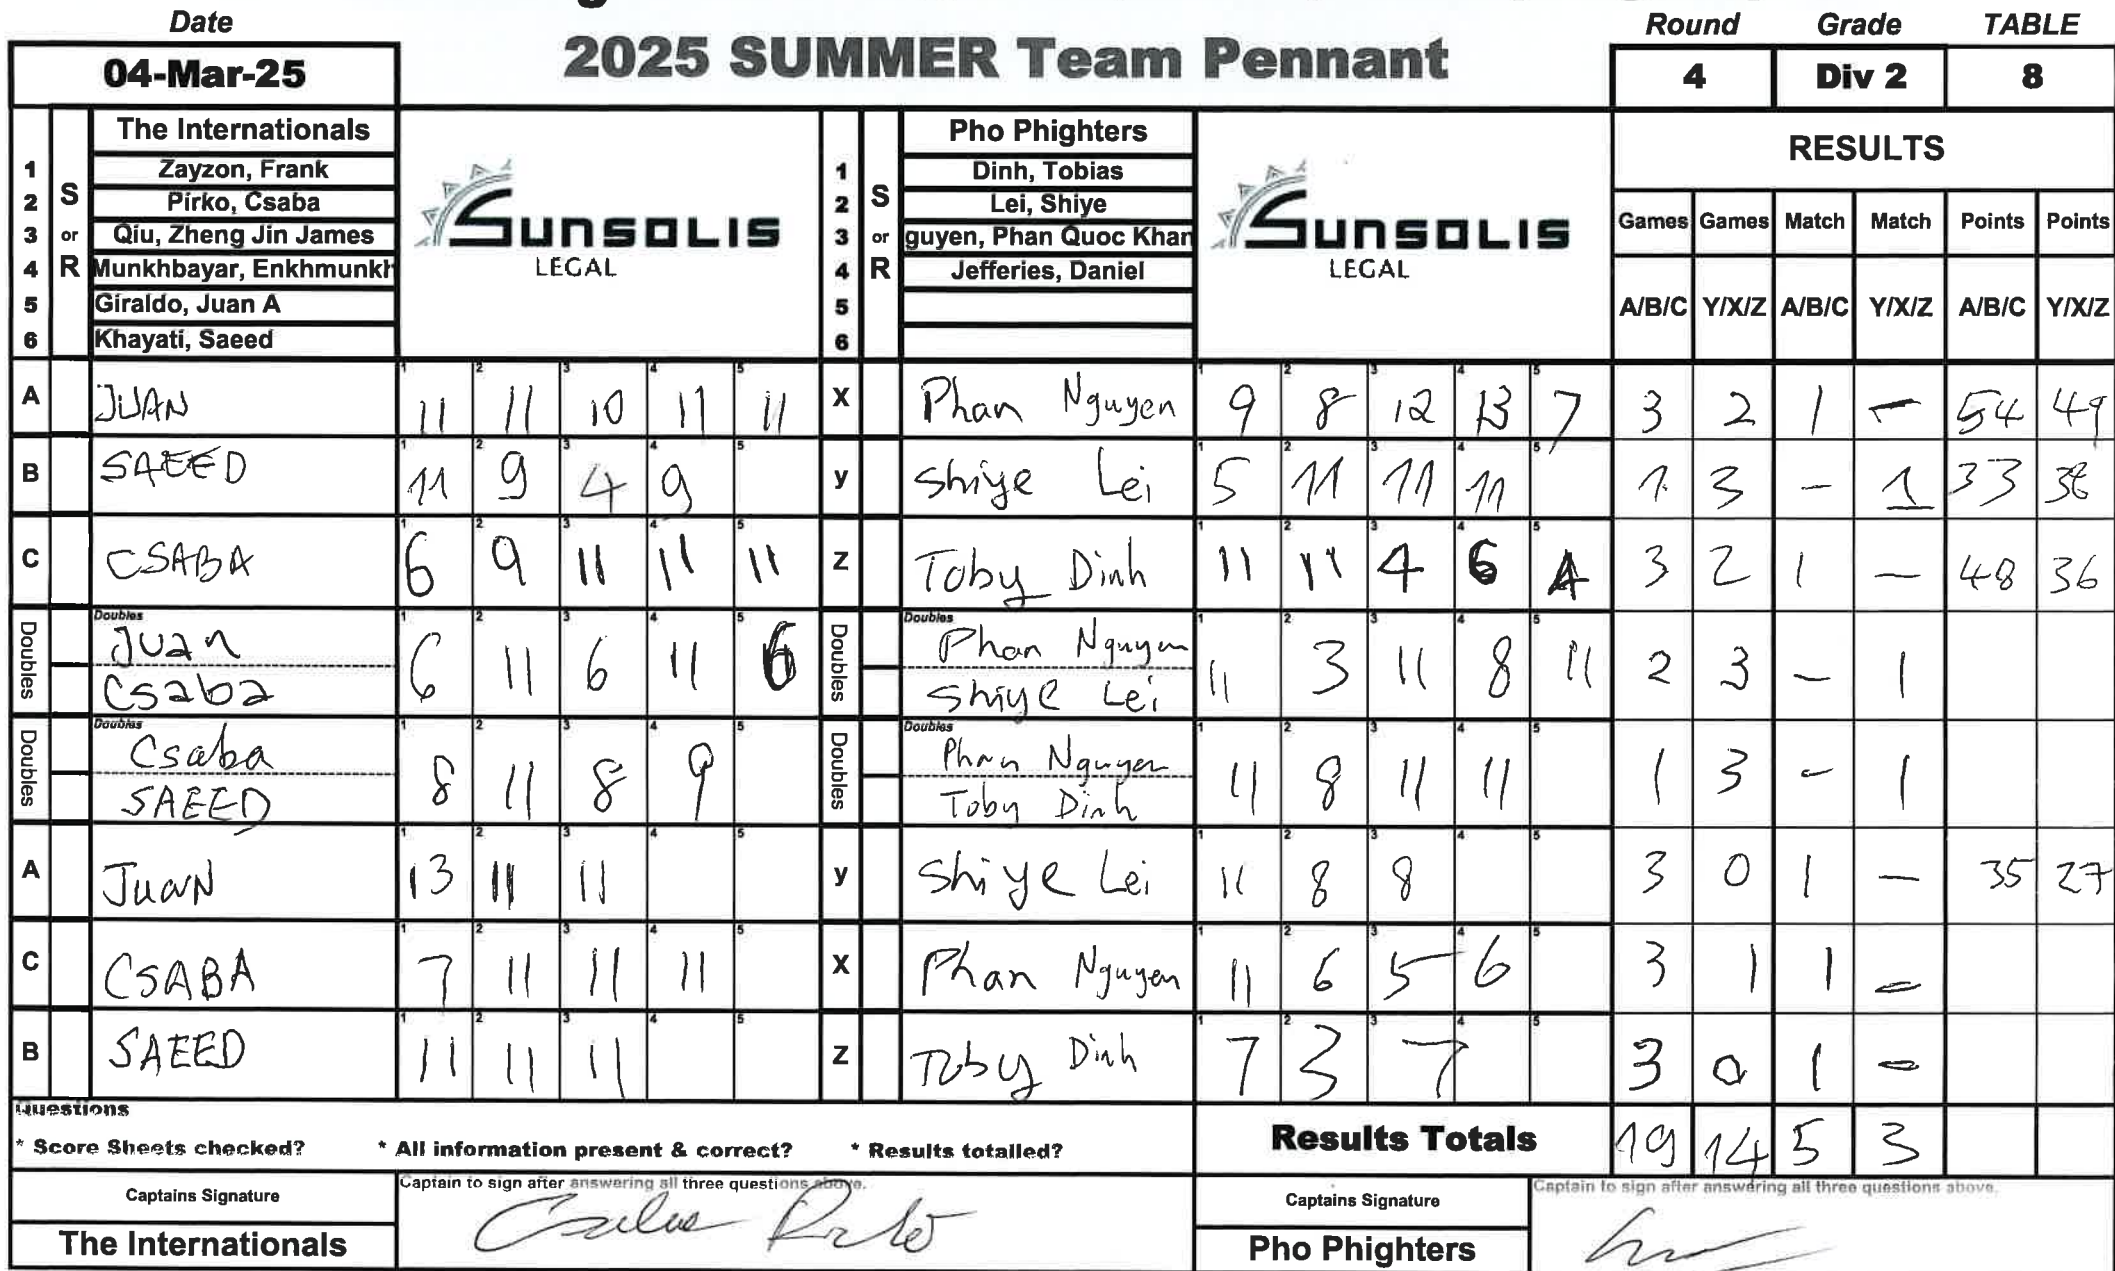 Date
04-Mar-25
2025 SUMMER Team Pennant
Round Grade TABLE
4 Div 2 8
The Internationals
1 Zayzon, Frank
2 Pirko, Csaba
3 Qiu, Zheng Jin James
4 Munkhbayar, Enkhmunkh
5 Giraldo, Juan A
6 Khayati, Saeed
S or R
SUNSOLIS
LEGAL
Pho Phighters
1 Dinh, Tobias
2 Lei, Shiye
3 guyen, Phan Quoc Khan
4 Jefferies, Daniel
5
6
S or R
SUNSOLIS
LEGAL
RESULTS
Games Games Match Match Points Points
A/B/C Y/X/Z A/B/C Y/X/Z A/B/C Y/X/Z
A JUAN 11 11 10 11 11 X Phan Nguyen 9 8 12 13 7 3 2 1 - 54 49
B SAEED 11 9 4 9 y Shiye Lei 5 11 11 11 1 3 - 1 33 38
C CSABA 6 9 11 11 11 Z Toby Dinh 11 11 4 6 4 3 2 1 - 48 36
Doubles Juan Csaba 6 11 6 11 6 Doubles Phan Nguyen Shiye Lei 11 3 11 8 11 2 3 - 1
Doubles Csaba SAEED 8 11 8 9 Doubles Phan Nguyen Toby Dinh 11 8 11 11 1 3 - 1
A JuaN 13 11 11 y Shiye Lei 11 8 8 3 0 1 - 35 27
C CSABA 7 11 11 11 X Phan Nguyen 11 6 5 6 3 1 1 -
B SAEED 11 11 11 Z Toby Dinh 7 3 7 3 0 1 -
Questions
* Score Sheets checked? * All information present & correct? * Results totalled?
Results Totals 19 14 5 3
Captains Signature
Captain to sign after answering all three questions above.
The Internationals
Captains Signature
Captain to sign after answering all three questions above.
Pho Phighters